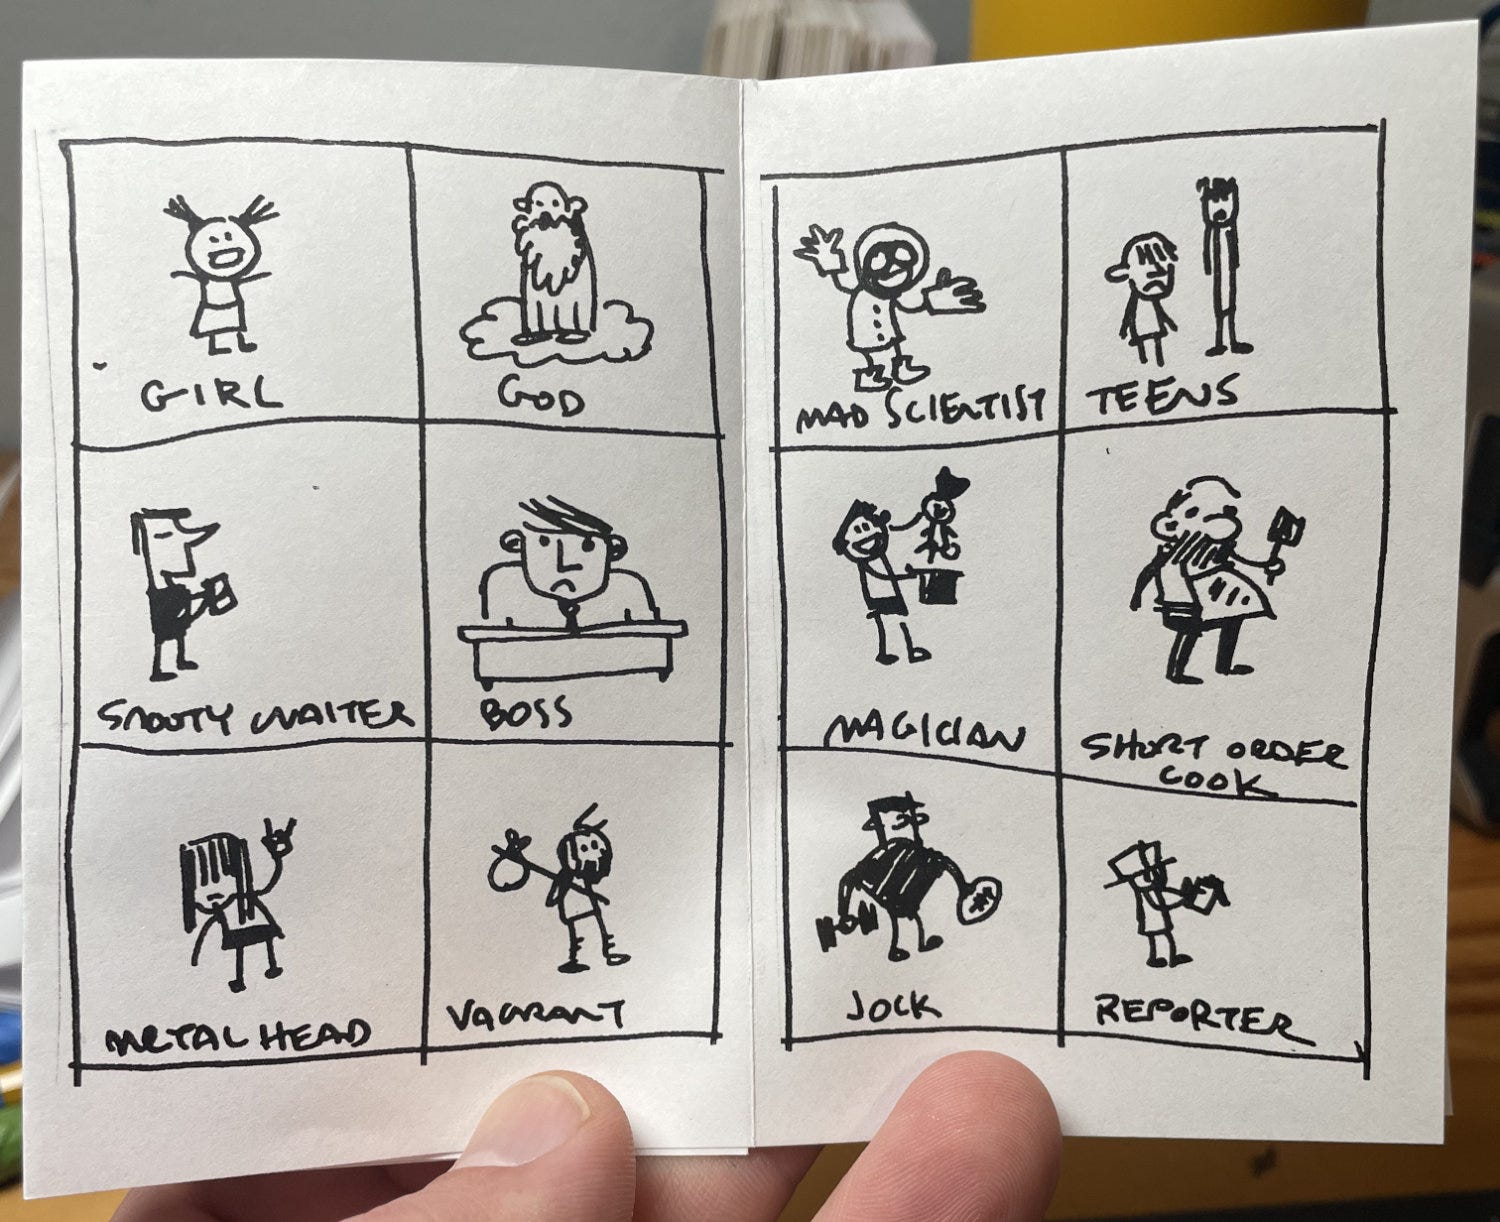 GIRL
GOD
SNOOTY WAITER
BOSS
METAL HEAD
VAGRANT
MAD SCIENTIST
TEENS
MAGICIAN
SHORT ORDER
COOK
JOCK
REPORTER